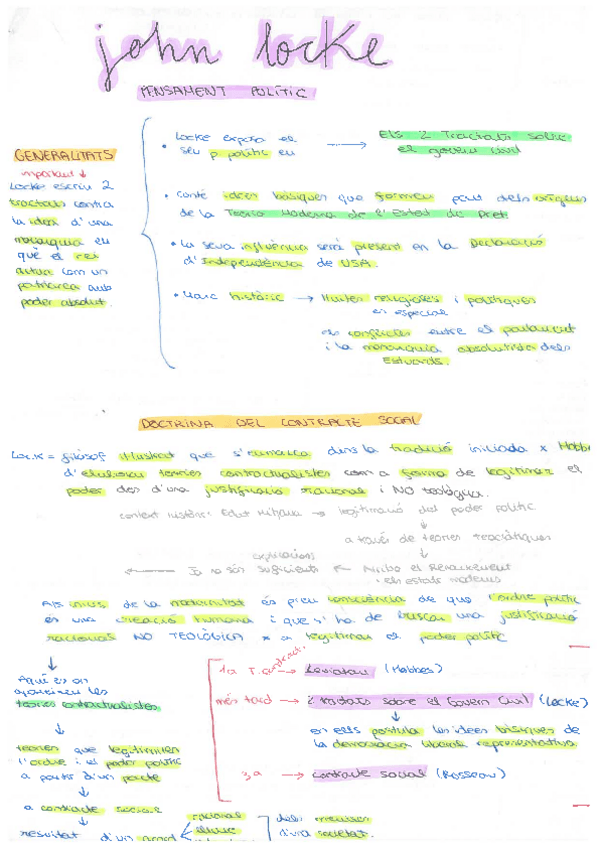 john locke
PENSAMENT POLÍTIC
GENERALITATS
important ↓
Locke escriu 2
tractats contra
la idea d'una
monarquia en
què el rei
actua com un
patriarca amb
poder absolut.
• Locke exposa el
seu p polític en → Els 2 Tractats sobre
el govern civil
• conté idees bàsiques que formen part dels orígens
de la Teoria Moderna de l'Estat de Dret
• La seva influència serà present en la Declaració
d'Independència de USA.
• Marc històric → lluites religioses i polítiques
en especial
els conflictes entre el parlament
i la monarquia absolutista dels
Estuards.
DOCTRINA DEL CONTRACTE SOCIAL
Locke = filòsof il·lustrat que s'emmarca dins la tradició iniciada x Hobb
d'elaborar teories contractualistes com a forma de legitimar el
poder des d'una justificació racional i NO teològica.
context històric: Edat Mitjana → legitimació del poder polític
↓
a través de teories teocràtiques
↓
explicacions
← Ja no són suficients ← Arriba el Renaixement
i els estats moderns
Als inicis de la modernitat es pren consciència de que l'ordre polític
és una creació humana i que s'ha de buscar una justificació
racional NO TEOLÒGICA x a legitimar el poder polític
↓
Aquí es on
apareixen les
teories contractualistes
↓
teories que legitimen
l'ordre i el poder polític
a partir d'un pacte
↓
a contracte social
↓
resultat d'un acord
1a T. contract. → Leviatan (Hobbes)
més tard → 2 tractats sobre el Govern Civil (Locke)
↓
en ells postula les idees bàsiques de
la democràcia liberal representativa.
3a → Contracte social (Rosseau)
racional
lliure
dels membres
d'una societat.